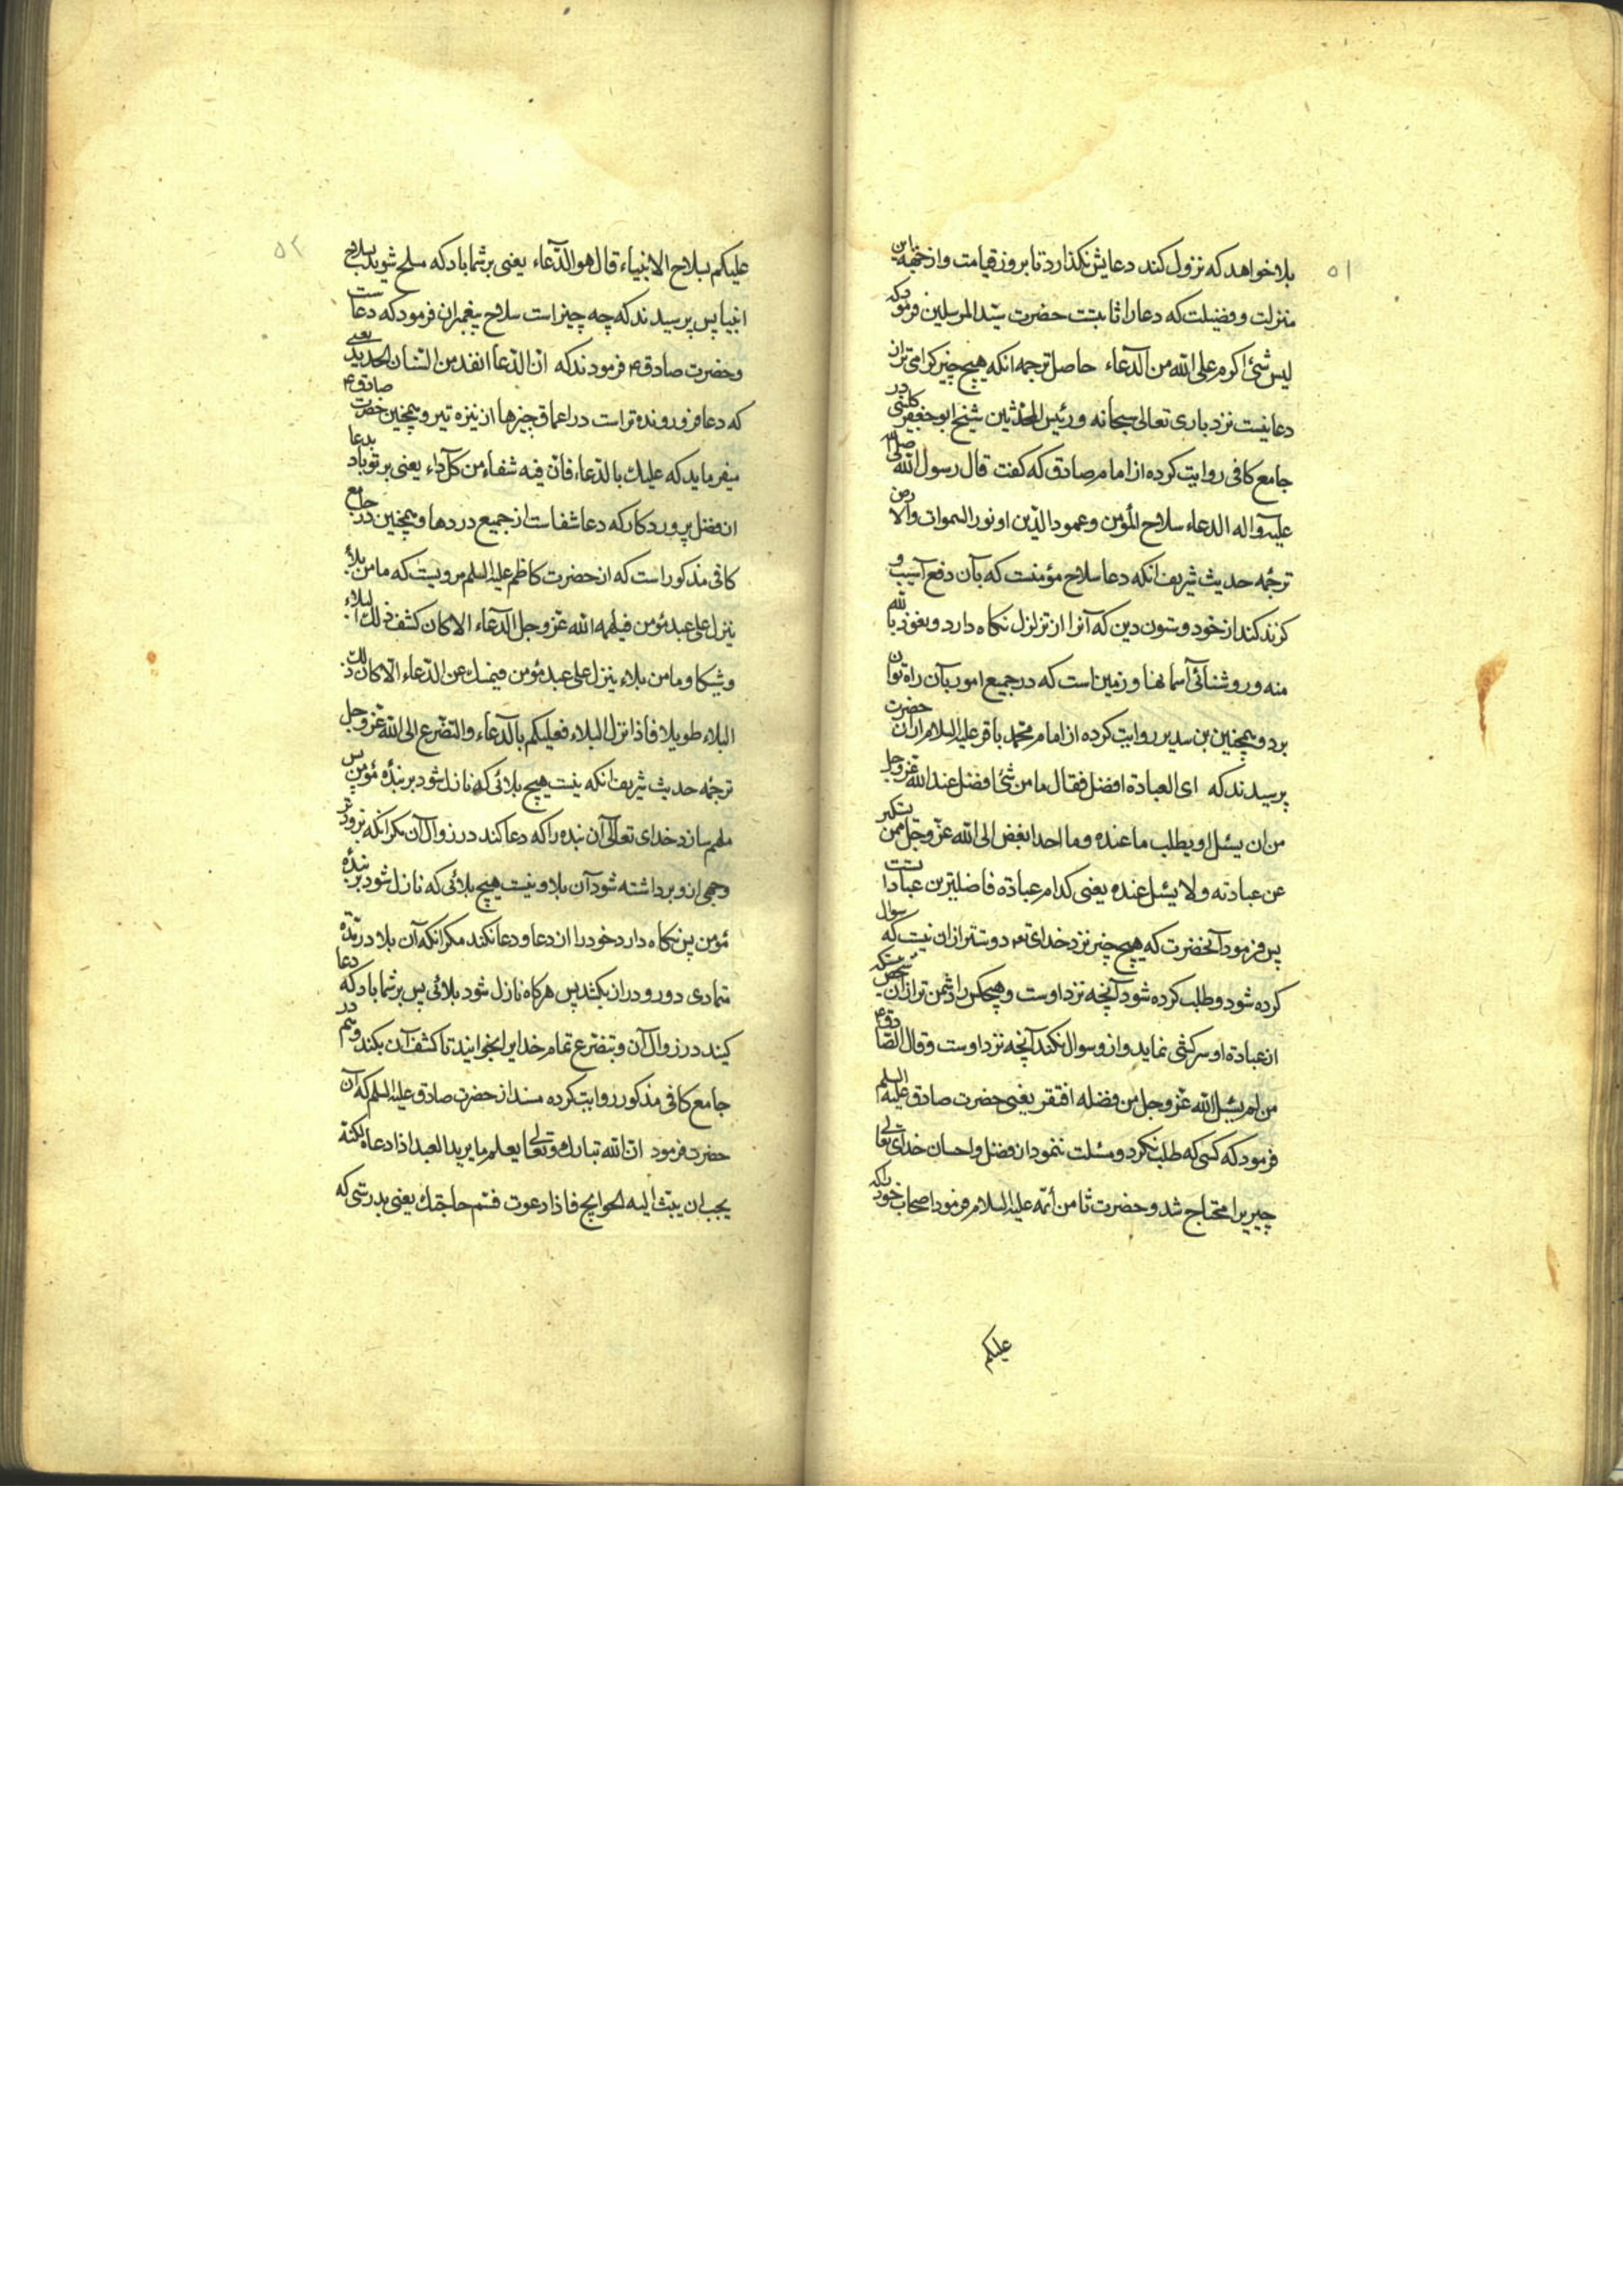 ۵۱
بلا خواهد که نزول کند دعایش نکذارد تا بروز قیامت و از جهة این
منزلت و فضیلت که دعا را ثابتست حضرت سیّد المرسلین فرمود که
لیس شئ اکرم علی الله من الدعاء حاصل ترجمه انکه هیچ چیز کرامی تر از
دعا نیست نزد باری تعالی سبحانه و رئیس المحدثین شیخ ابو جعفر کلینی در
جامع کافی روایت کرده از امام صادق که کفت قال رسول الله صلی الله
علیه واله الدعاء سلاح المؤمن وعمود الدّین او نور السموات والارض
ترجمه حدیث شریف انکه دعا سلاح مؤمنست که بآن دفع آسیب و
کزند کند از خود و ستون دین که آنرا از تزلزل نکاه دارد و نعوذ بالله
منه و روشنائی آسمانها و زمین است که در جمیع امور بآن راه توان
برد و همچنین بن سدیر روایت کرده از امام محمد باقر علیه السلام از آن حضرت
پرسیدند که ای العبادة افضل فقال ما من شئ افضل عند الله عزوجل
من ان یسئل او یطلب ما عنده وما احد ابغض الی الله عزّ وجلّ ممن یستکبر
عن عبادته ولا یسئل عنده یعنی کدام عبادة فاضلترین عباداتست
پس فرمود آنحضرت که هیچ چیز نزد خدای تع دوستر از ان نیست که سوال
کرده شود و طلب کرده شود آنچه نزد اوست و هیچکس را دشمن تر از آن شخص نیست که
از عبادة او سرکشی نماید و از و سوال نکند آنچه نزد اوست وقال الصادق ع
من لم یسئل الله عزّ وجل من فضله افتقر یعنی حضرت صادق علیه السلم
فرمود که کسی که طلب نکرد و مسئلت ننمود از فضل و احسان خدای تعالی
چیزیرا محتاج شد و حضرت ثامن أئمّه علیه السلام فرمود اصحاب خود را که
علیکم
۵۲
علیکم بسلاح الانبیاء قال هو الدّعاء یعنی بر شما باد که مسلح شوید بسلاح
انبیا پس پرسیدند که چه چیز است سلاح پیغمبران فرمود که دعاست
و حضرت صادق ع فرمودند که انّ الدّعا انفذ من السّنان الحدید یعنی
که دعا فرو رونده تر است در اعماق چیزها از نیزه تیر و همچنین حضرت صادق ع
میفرماید که علیك بالدّعاء فانّ فیه شفاء من کلّ داء یعنی بر تو باد بدعا
از فضل پروردکار که دعا شفاست از جمیع دردها و همچنین در جامع
کافی مذکور است که از حضرت کاظم علیه السلم مرویست که ما من بلاء
ینزل علی عبد مؤمن فیلهمه الله عزّ وجل الدّعاء الا کان کشف ذلك البلاء
وشیکا وما من بلاء ینزل علی عبد مؤمن فیمسك عن الدّعاء الّا کان ذلك
البلاء طویلا فاذا نزل البلاء فعلیکم بالدّعاء والتضّرع الی الله عزّ وجل
ترجمه حدیث شریف انکه نیست هیچ بلائی که نازل شود بر بندهٔ مؤمن پس
ملهم سازد خدای تعالی آن بنده را که دعا کند در زوال آن مکر انکه بزودتر
وجهی ازو برداشته شود آن بلا و نیست هیچ بلائی که نازل شود بر بندهٔ
مؤمن پس نکاه دارد خود را از دعا و دعا نکند مکر انکه آن بلا در بنده
متمادی دور و دراز بکشد پس هرکاه نازل شود بلائی پس بر شما باد که دعا
کیند در زوال آن و بتضرع تمام خدایرا بخوانید تا کشف آن بکند و هم در
جامع کافی مذکور روایت کرده مسند از حضرت صادق علیه السلم که آن
حضرت فرمود انّ الله تبارك وتعالی یعلم ما یرید العبد اذا دعاه لکنّه
یجب ان یبثّ الیه الحوایج فاذا دعوت فسّم حاجتك یعنی بدرستی که